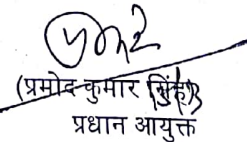 (प्रमोद कुमार सिंह)
प्रधान आयुक्त